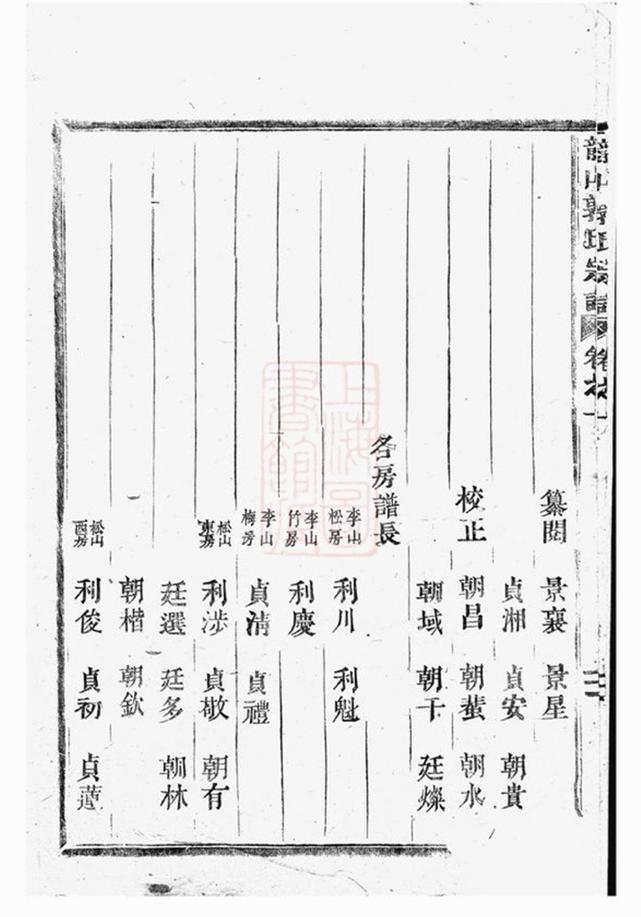 龍山郭氏宗譜 卷之一
纂閱 景襄 景星
貞湘 貞安 朝貴
校正 朝昌 朝蜚 朝水
朝域 朝干 廷燦
各房譜長
李山松房 利川 利魁
李山竹房 利慶
李山梅房 貞清 貞禮
松山東房 利涉 貞敬 朝有
廷選 廷多 朝林
朝楷 朝欽
松山酉房 利俊 貞初 貞蓮
上海圖書館藏